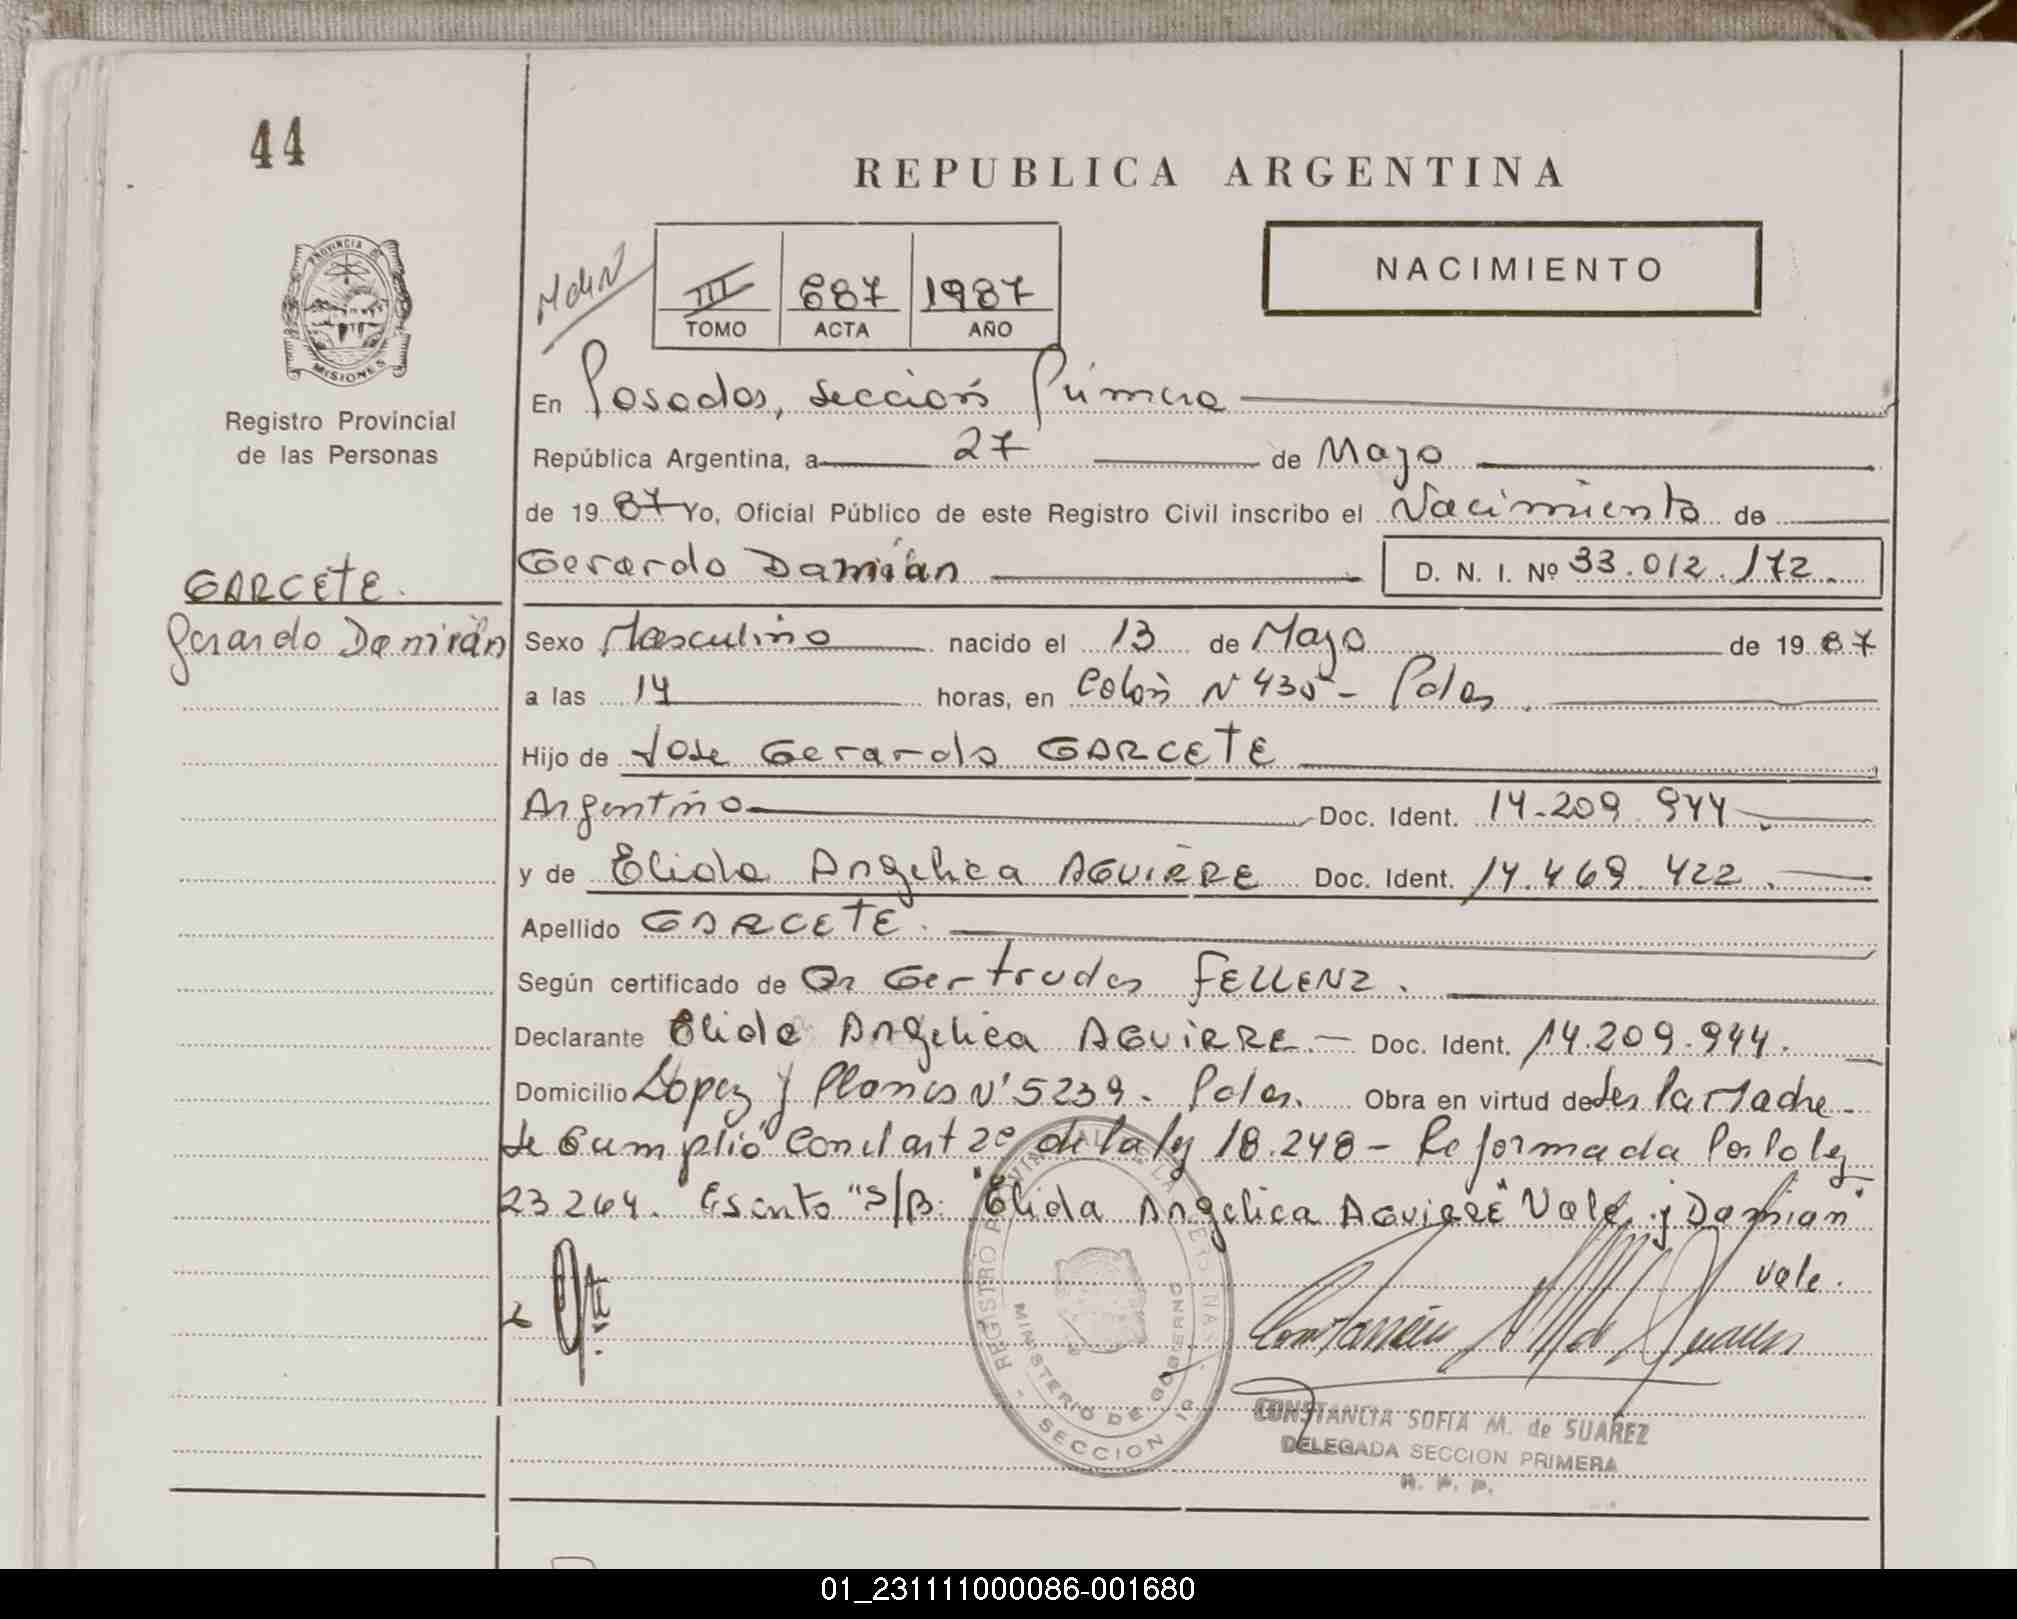 44
REPUBLICA ARGENTINA
NACIMIENTO
III 687 1987
TOMO ACTA AÑO
PROVINCIA DE
MISIONES
Registro Provincial
de las Personas
En Posadas, sección Primera
República Argentina, a 27 de Mayo
de 1987 Yo, Oficial Público de este Registro Civil inscribo el Nacimiento de
Gerardo Damián D. N. I. Nº 33.012.172.
GARCETE.
Gerardo Damián
Sexo Masculino nacido el 13 de Mayo de 1987
a las 14 horas, en Colón N° 430 - Pdas.
Hijo de Jose Gerardo GARCETE
Argentino Doc. Ident. 14.209.944
y de Elida Angelica AGUIRRE Doc. Ident. 14.469.422.
Apellido GARCETE.
Según certificado de Dr Gertrudes FELLENZ.
Declarante Elida Angelica AGUIRRE.- Doc. Ident. 14.209.944.
Domicilio López y Planes N° 5239. Pdas. Obra en virtud de Ser la Madre-
Se Cumplió Con el art 2º de la ley 18.248 - Reformada Por la ley
23264. Escrito "S/B: "Elida Angelica AGUIRRE" Vale. y Damian"
vale.
REGISTRO PROVINCIAL DE LAS PERSONAS
MINISTERIO DE GOBERNO
SECCION 1ª
CONSTANCIA SOFIA M. de SUAREZ
DELEGADA SECCION PRIMERA
R. P. P.
01_231111000086-001680